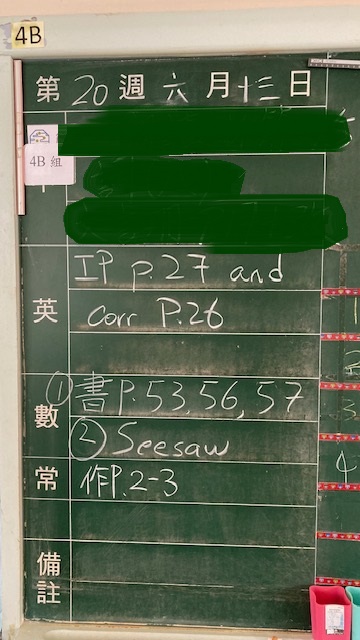 4B
第 20 週 六 月 十三 日
4B 組
英
IP p.27 and
corr P.26
數
① 書P.53,56,57
② Seesaw
常
作P.2-3
備註